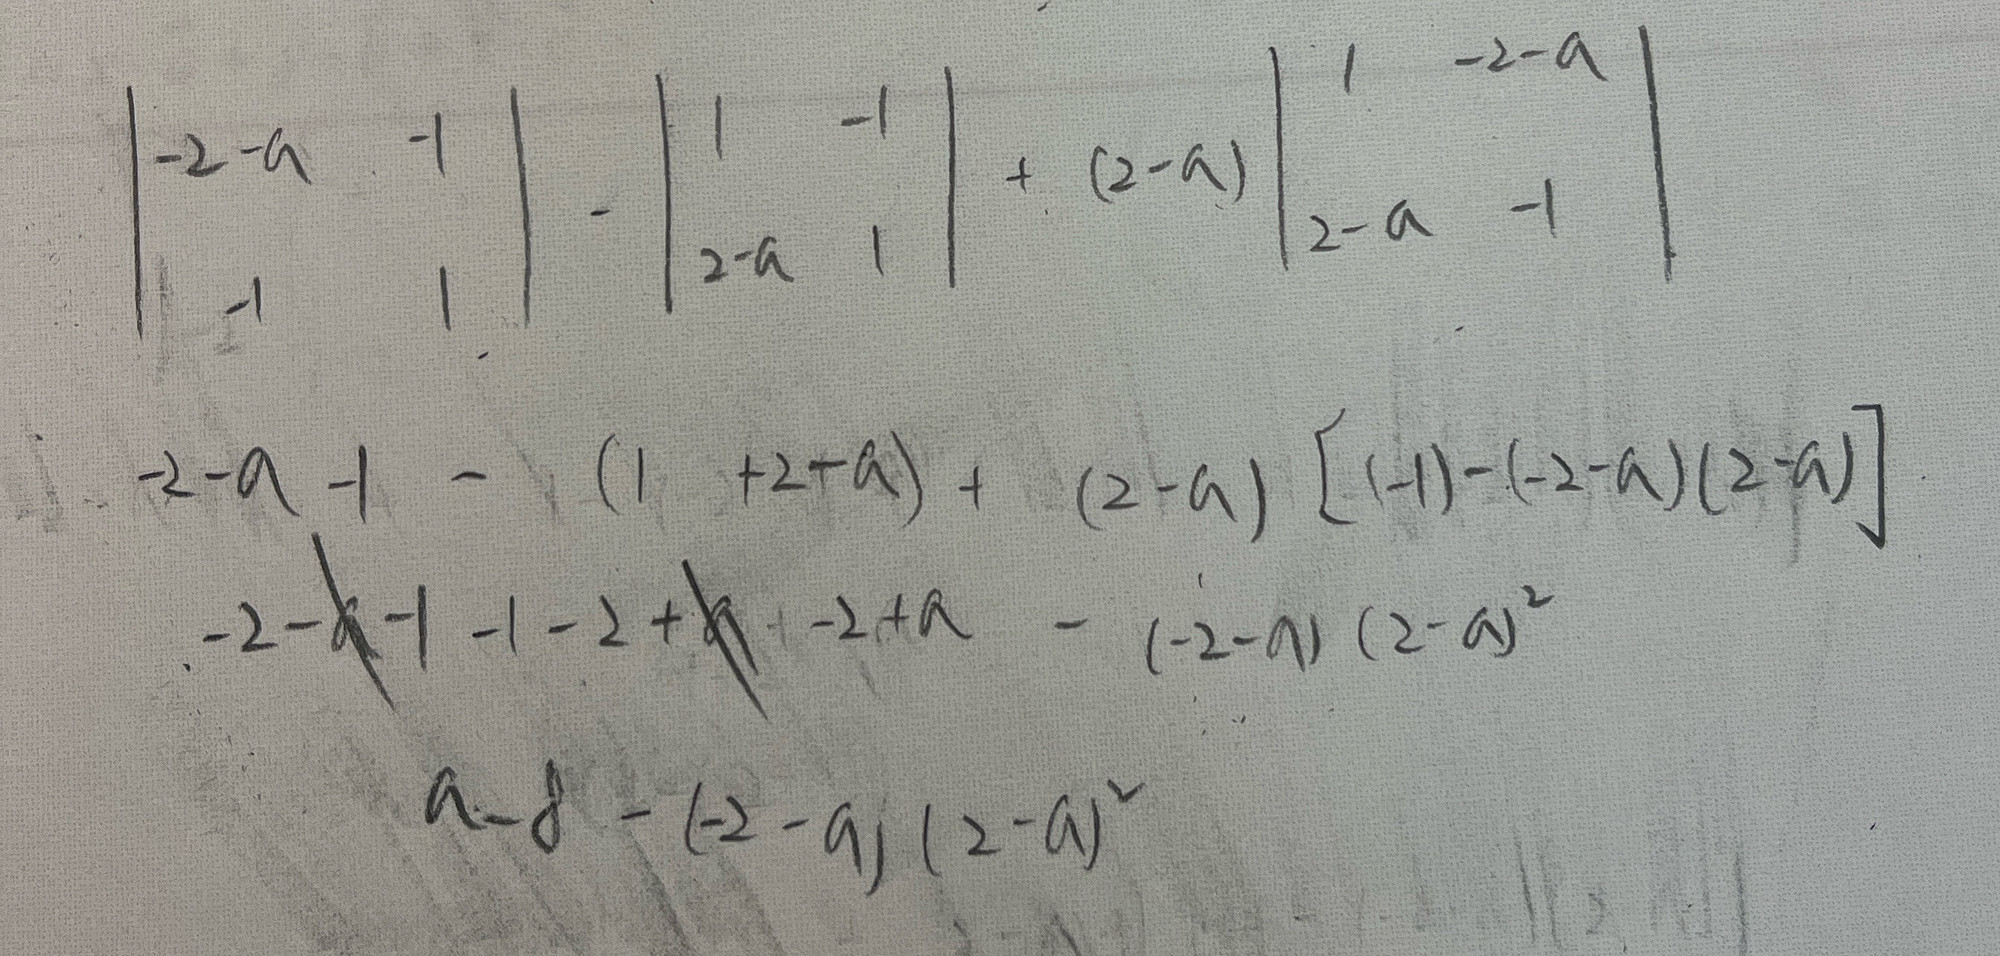 | -2-a -1 | - | 1 -1 | + (2-a) | 1 -2-a |
| -1 1 | | 2-a 1 | | 2-a -1 |
-2-a -1 - (1 +2-a) + (2-a) [(-1)-(-2-a)(2-a)]
-2-a-1 -1-2+a -2+a - (-2-a) (2-a)²
a-8 - (-2-a) (2-a)²